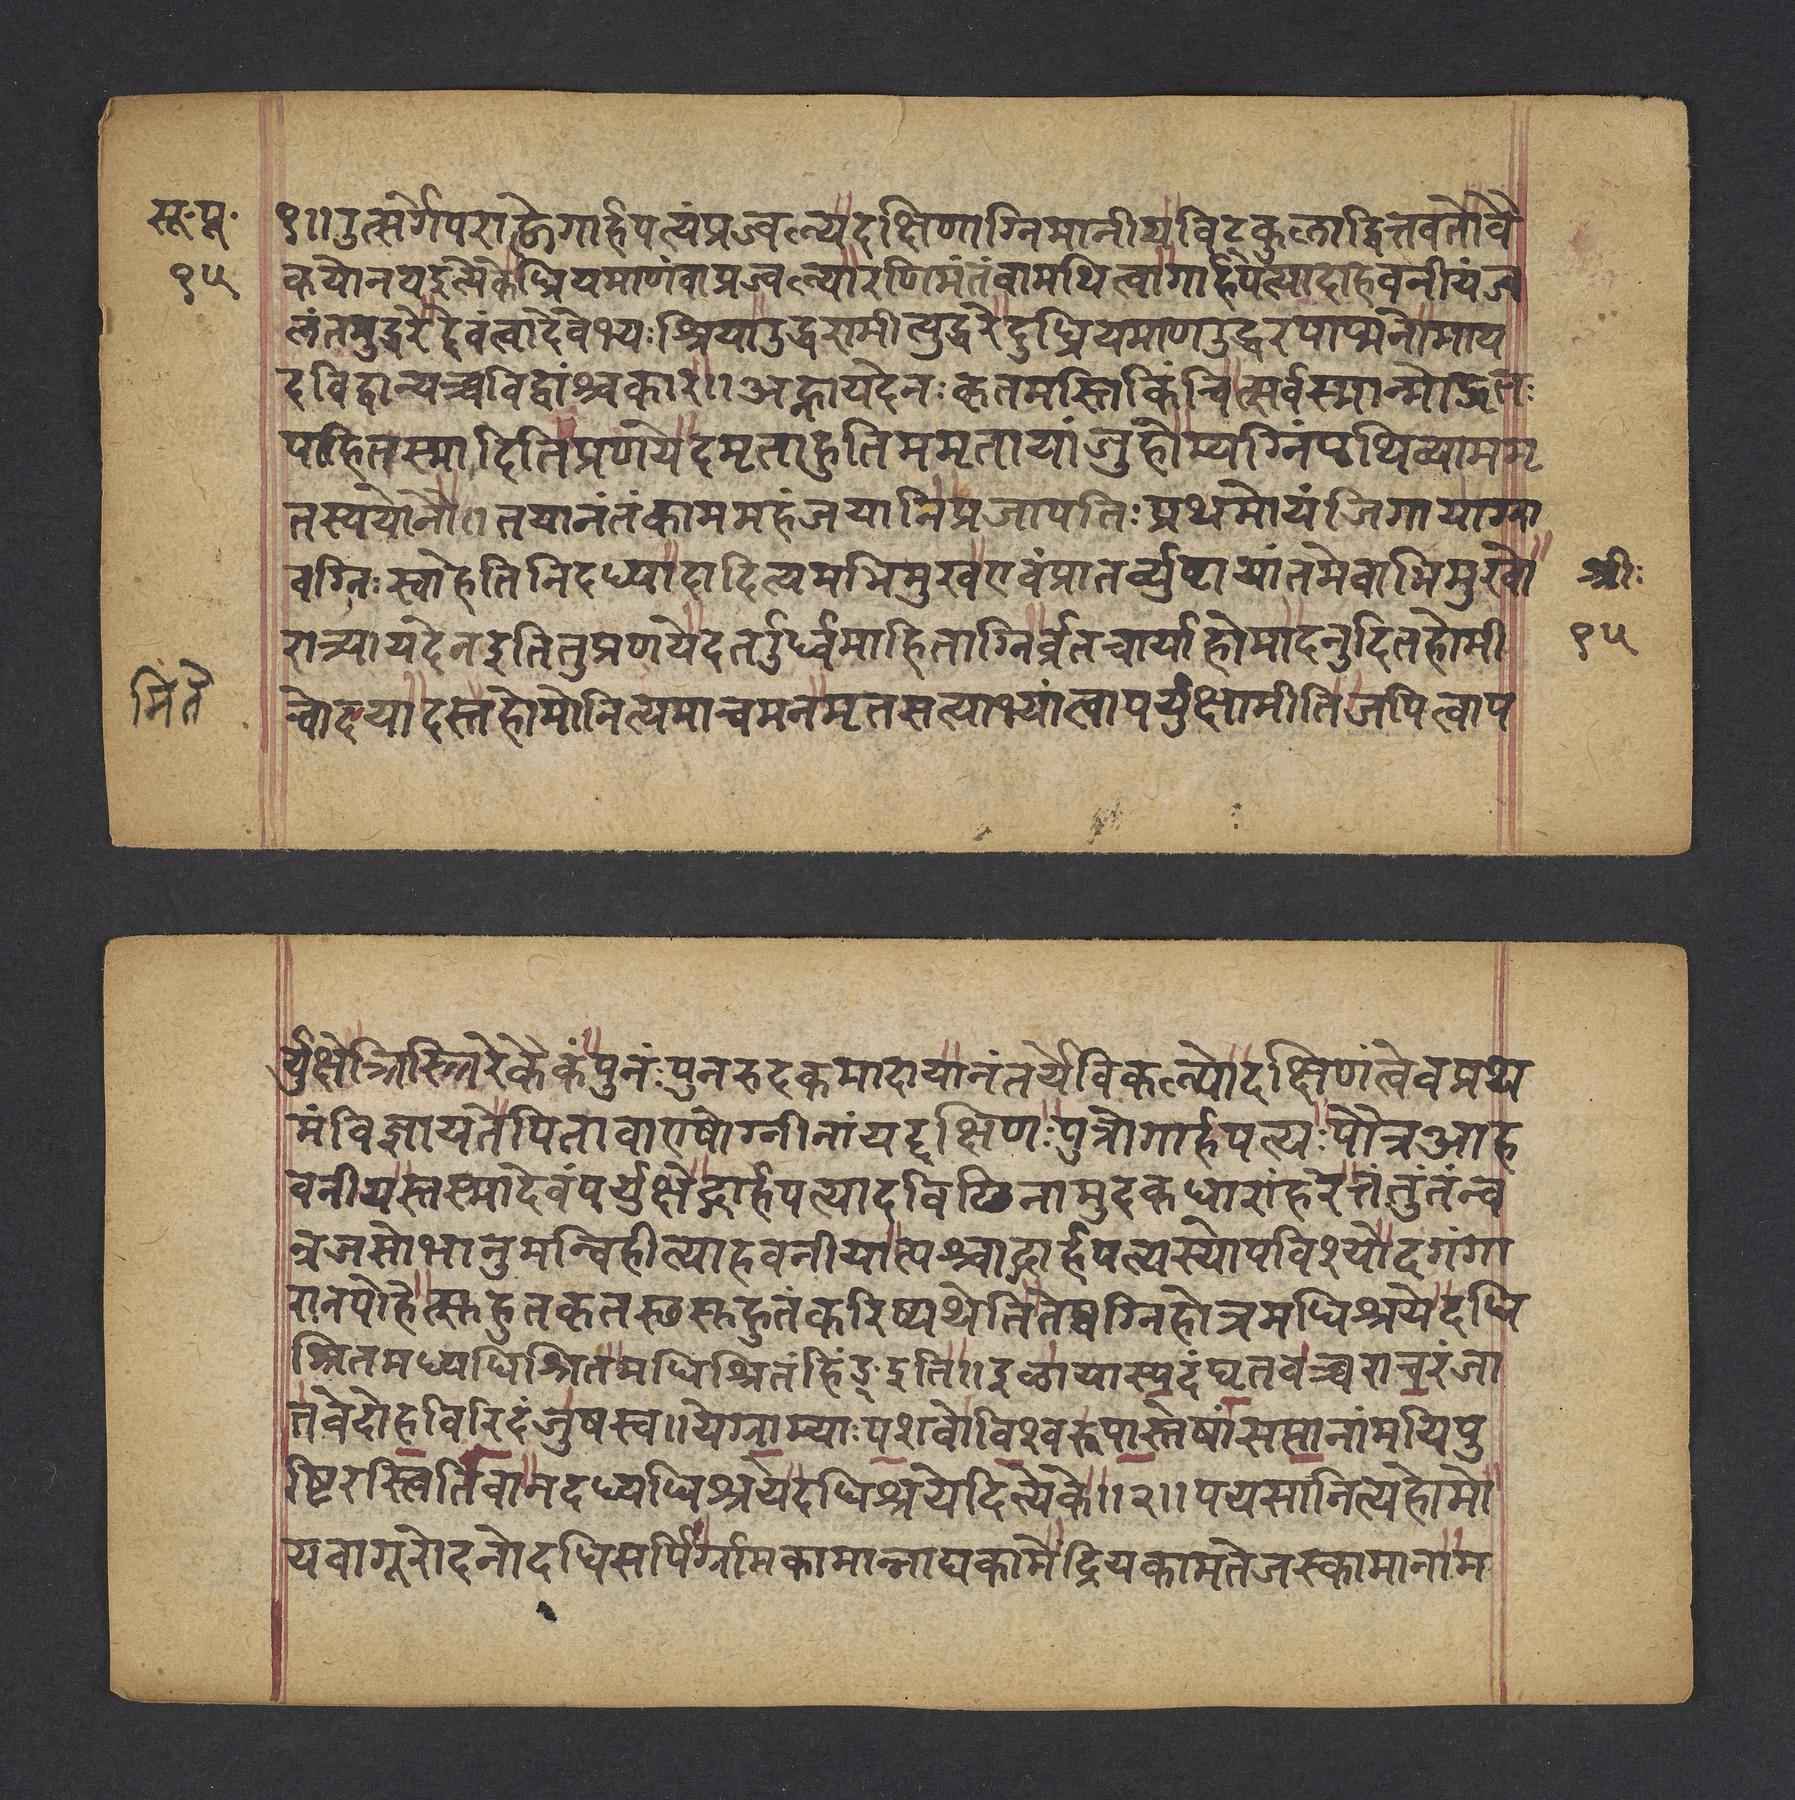 सू॰पू॰
१५
१॥उत्सर्गेपराह्णेगार्हपत्यंप्रज्वल्यदक्षिणाग्निमानीयविट्कुलाद्वित्तवतोवै
कयोनयइत्येकेध्रियमाणंवाप्रज्वल्यारणिमंतंवामथित्वागार्हपत्यादाहवनीयंज्व
लंतमुद्धरेद्देवंत्वादेवेभ्यःश्रियाउद्धरामीत्युद्धरेदुध्रियमाणउद्धरपाप्मनोमाय
दविद्वान्यच्चविद्वांश्चकार॥अह्नायदेनःकृतमस्तिकिंन्वित्सर्वस्मान्मोद्धृतः
पाहितस्मादितिप्रणयेदमृताहुतिममृतायांजुहोम्यग्निंपृथिव्याममृ
तस्ययोनौ॥तयानंतंकाममहंजयानिप्रजापतिःप्रथमोयंजिगायाग्ना
वग्निःस्वाहेतिनिदध्यादादित्यमभिमुखएवंप्रातर्व्युष्टायांतमेवाभिमुखो
रात्र्यायदेनइतितुप्रणयेदतर्ऊर्ध्वमाहिताग्निर्व्रतचार्याहोमादनुदितहोमी
चोदयादस्तहोमोनित्यमाचमनमृतसत्याभ्यांत्वापर्युक्षामीतिजपित्वाप
श्रीः
१५
मिते
र्युक्षेत्त्रिस्त्रिरेकैकंपुनःपुनरुदकमादायानंतर्येविकल्पोदक्षिणंत्वेवप्रथ
मंविज्ञायतेपितावाएषोग्नीनांयद्दक्षिणःपुत्रोगार्हपत्यःपौत्रआह
वनीयस्तस्मादेवंपर्युक्षेद्गार्हपत्यादविछिनामुदकधारांहरेत्तंतुंतन्व
न्रजसोभानुमन्विहीत्याहवनीयात्पश्चाद्गार्हपत्यस्योपविश्योदगंगा
रानपोहेत्सुहुतकृतस्छसुहुतंकरिष्यथेतितेष्वग्निहोत्रमधिश्रयेदधि
श्रितमध्यधिश्रितमधिश्रितंहिं३इति॥इळायास्पदंघृतवच्चराचरंजा
तवेदोहविरिदंजुषस्व॥येग्राम्याःपशवोविश्वरूपास्तेषांसप्तानांमयिपु
ष्टिरस्त्वितिवानदध्यधिश्रयेदधिश्रयेदित्येके॥२॥पयसानित्यहोमो
यवागूरोदनोदधिसर्पिर्ग्रामकामान्नाद्यकामेंद्रियकामतेजस्कामानाम